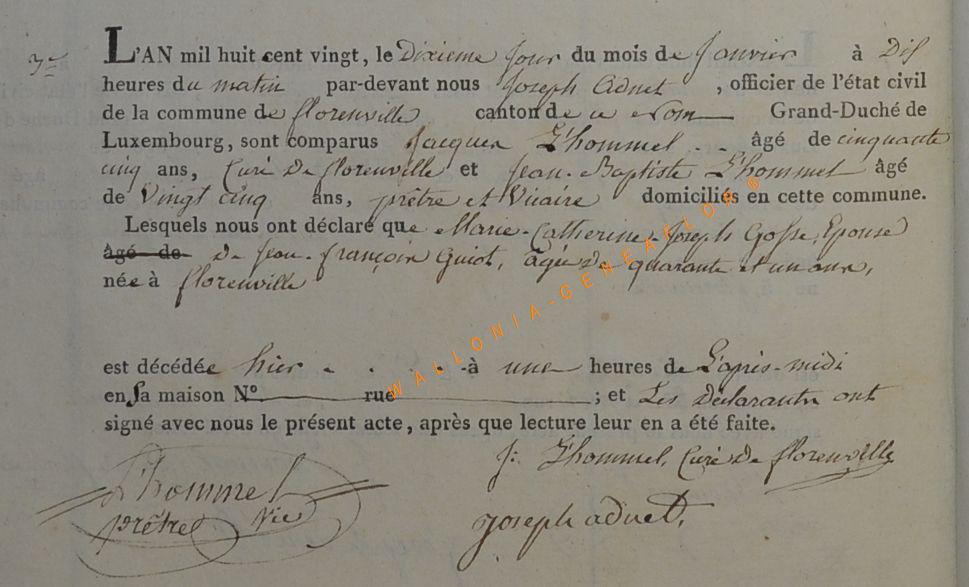 3e
L'AN mil huit cent vingt, le Dixieme Jour du mois de Janvier à Dix
heures du matin par-devant nous Joseph Adnet, officier de l'état civil
de la commune de florenville canton de ce Nom Grand-Duché de
Luxembourg, sont comparus Jacques L'hommel . . âgé de cinquante
cinq ans, Curé De florenville et Jean-Baptiste L'hommel âgé
de Vingt cinq ans, prêtre et Vicaire domiciliés en cette commune.
Lesquels nous ont déclaré que Marie-Catherine-Joseph Gosse, Epouse
âgé de De Jean-françois Guiot, âgée De quarante et un ans,
née à florenville
est décédée hier - . . . à une heures de L'après-midi
en sa maison N° rue ; et Les Déclarants ont
signé avec nous le présent acte, après que lecture leur en a été faite.
J: L'hommel, Curé De florenville
L'hommel
prêtre Vic
joseph adnet,
WALLONIA-GENEALOR ®